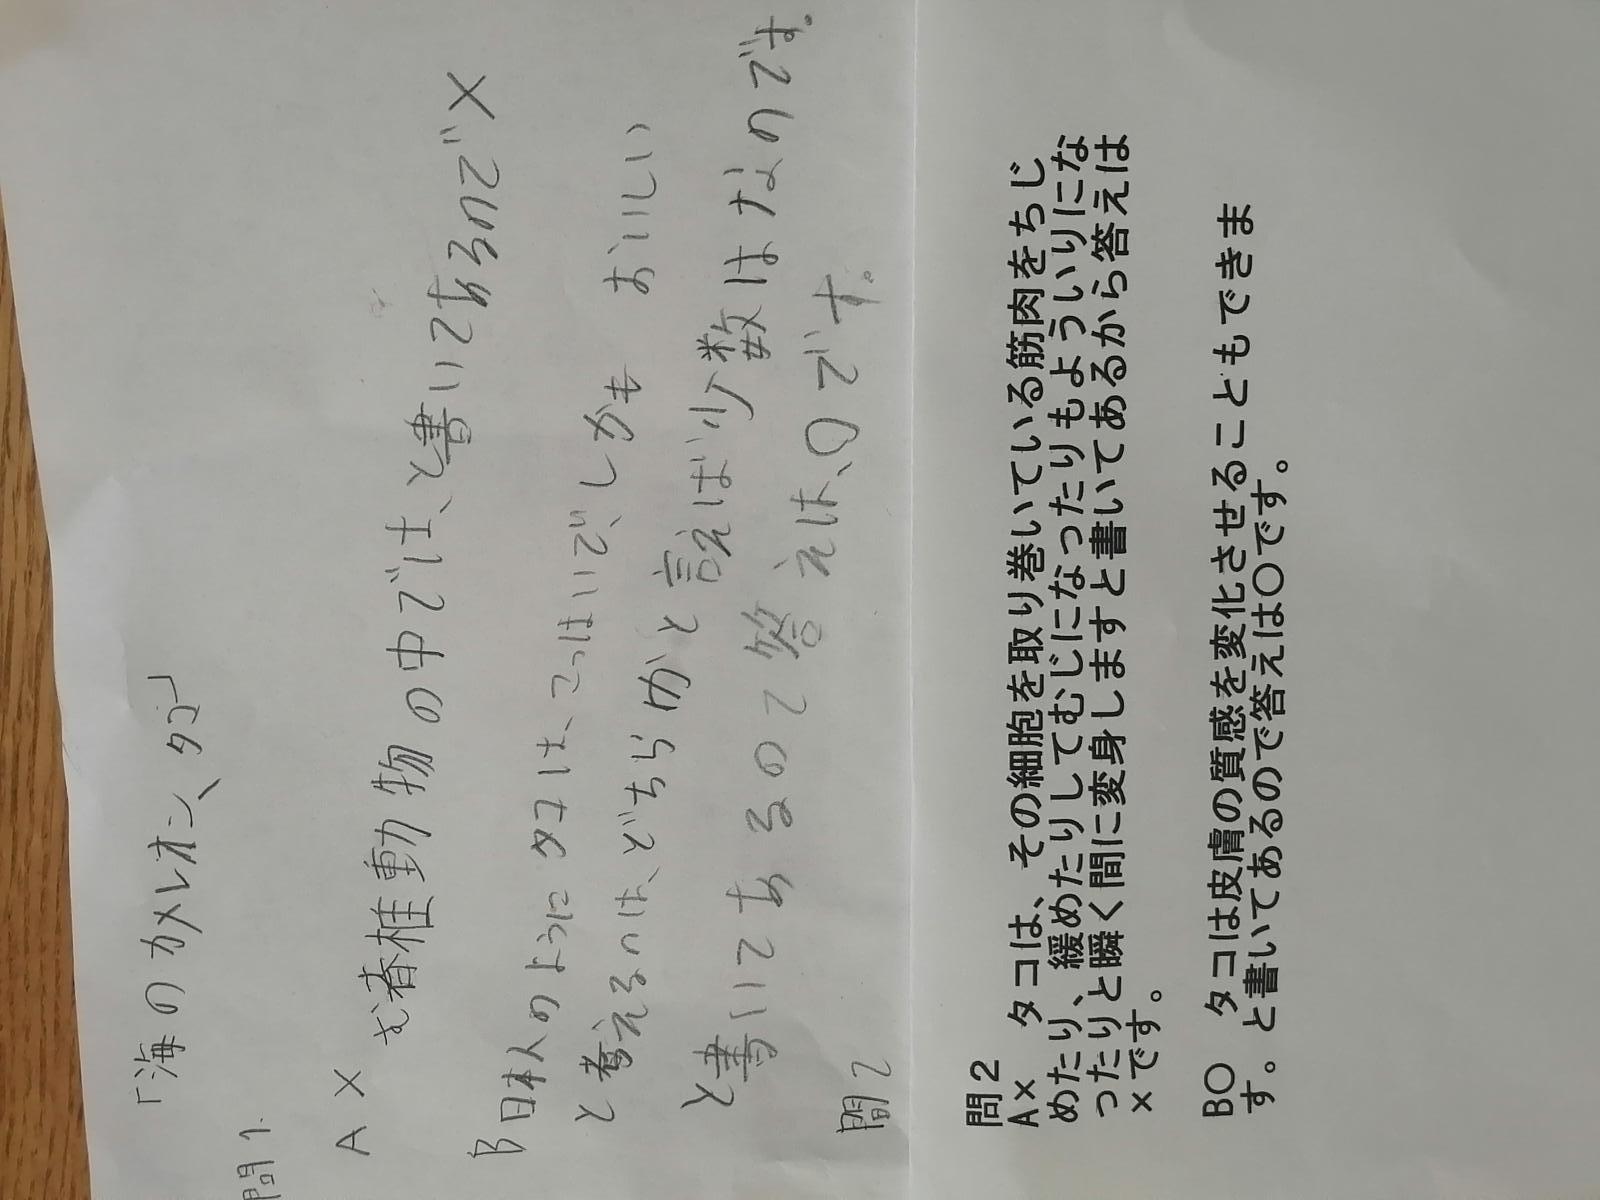 「海のカメレオン、タコ」
問1.
A ×
む脊椎動物の中では、と書いてあるので×
B 日本人のようにタコは、こっはいで、しかも おいしい
と考えるのは、どちらかと言えば少数はなのです。
と書いてあるので答えは、〇です。
問2
問2
A× タコは、その細胞を取り巻いている筋肉をちじ
めたり、緩めたりしてむじになったりもよういりにな
ったりと瞬く間に変身しますと書いてあるから答えは
×です。
B〇 タコは皮膚の質感を変化させることもできま
す。と書いてあるので答えは〇です。